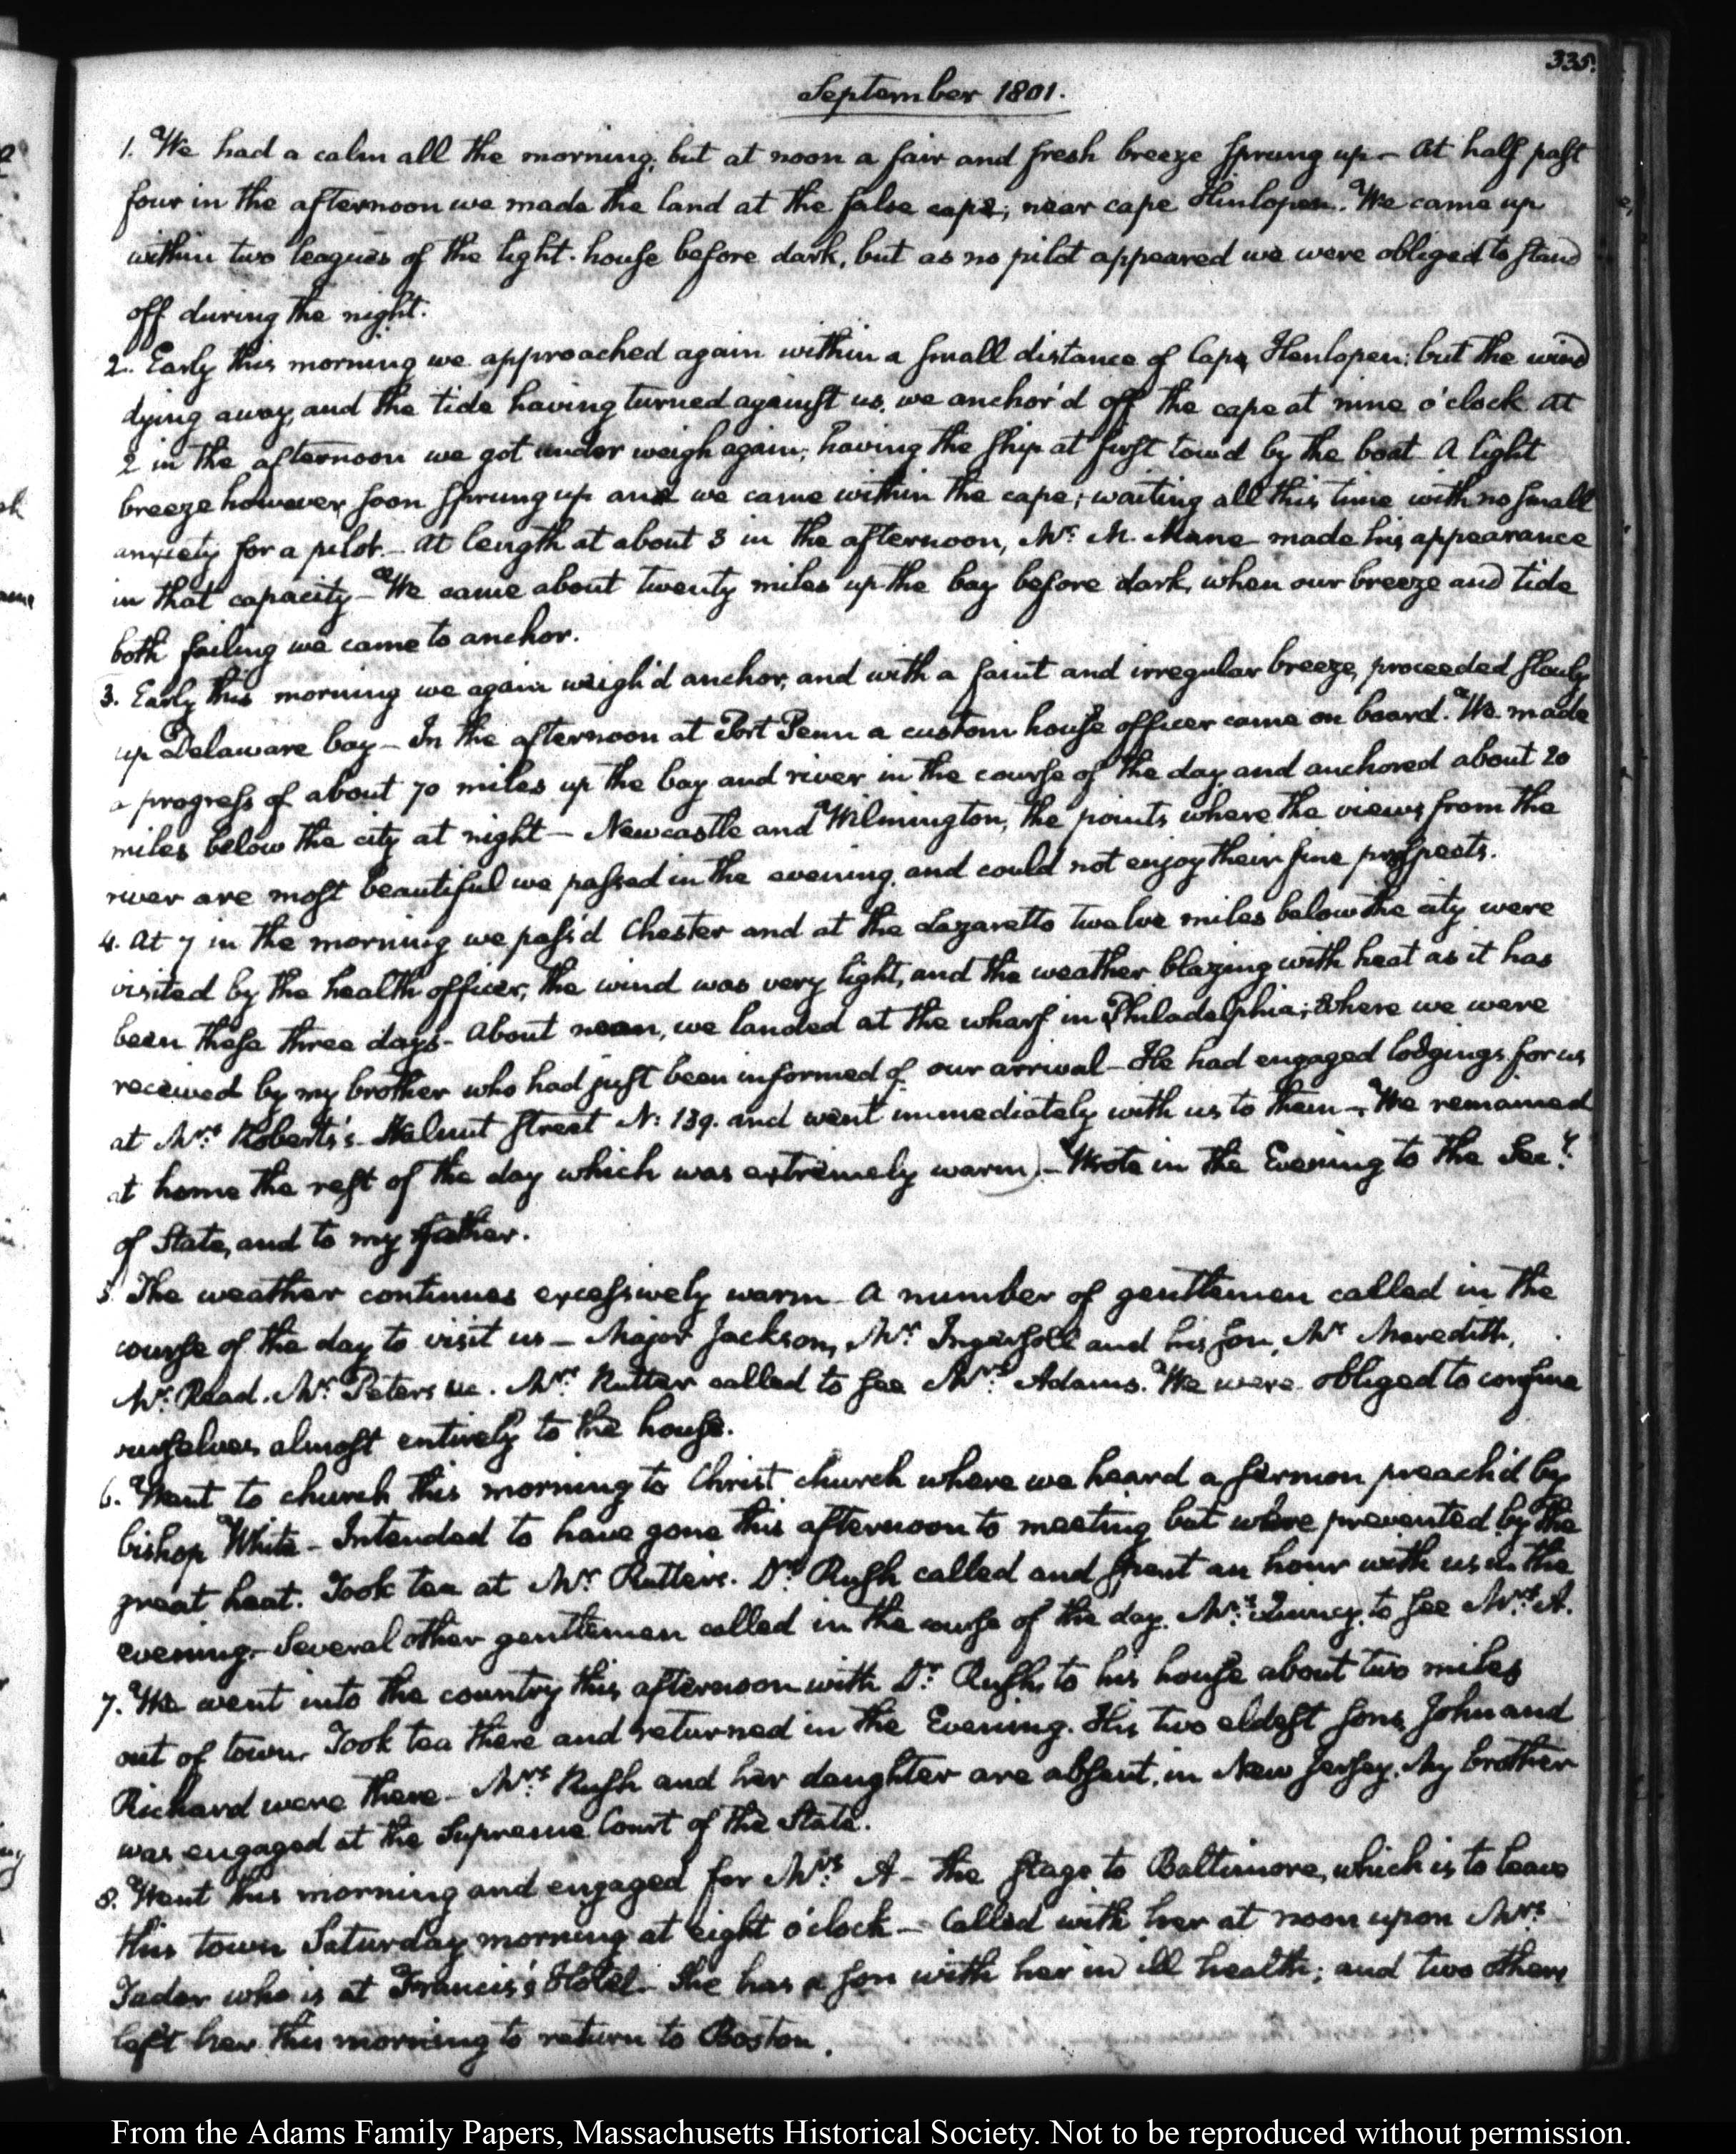 335.
September 1801.
1. We had a calm all the morning; but at noon a fair and fresh breeze sprung up — At half past
four in the afternoon we made the land at the false cape, near cape Hinlopen. We came up
within two leagues of the light-house before dark, but as no pilot appeared we were obliged to stand
off during the night.
2. Early this morning we approached again within a small distance of Cape Henlopen: but the wind
dying away, and the tide having turned against us, we anchor'd off the cape at nine o'clock At
2 in the afternoon we got under weigh again; having the ship at first tow'd by the boat — A light
breeze however, soon sprung up and we came within the cape; waiting all this time with no small
anxiety for a pilot — At length at about 3 in the afternoon, Mr. M. made his appearance
in that capacity — We came about twenty miles up the bay before dark, when our breeze and tide
both failing we came to anchor.
3. Early this morning we again weigh'd anchor, and with a faint and irregular breeze, proceeded slowly
up Delaware bay — In the afternoon at Port Penn a custom house officer came on board. We made
a progress of about 70 miles up the bay and river in the course of the day and anchored about 20
miles below the city at night — Newcastle and Wilmington, the points where the views from the
river are most beautiful we passed in the evening, and could not enjoy their fine prospects.
4. At 7 in the morning we pass'd Chester and at the Lazaretto twelve miles below the city were
visited by the health officer; the wind was very light, and the weather blazing with heat as it has
been these three days — About noon, we landed at the wharf in Philadelphia; where we were
received by my brother who had just been informed of our arrival — He had engaged lodgings for us
at Mrs. Roberts's Walnut Street N: 139. and went immediately with us to them — We remained
at home the rest of the day which was extremely warm — Wrote in the Evening to the Secy.
of State, and to my father.
5. The weather continues excessively warm — A number of gentlemen called in the
course of the day to visit us — Major Jackson, Mr. Ingersoll and his son, Mr. Meredith,
Mr. Read. Mr. Peters &c. Mrs. Rutter called to see Mrs. Adams. We were obliged to confine
ourselves almost entirely to the house.
6. Went to church this morning to Christ church where we heard a sermon preach'd by
bishop White — Intended to have gone this afternoon to meeting but were prevented by the
great heat. Took tea at Mr. Rutter's. Dr. Rush called and spent an hour with us in the
evening — Several other gentlemen called in the course of the day. Mrs. Quincy, to see Mrs. A.
7. We went into the country this afternoon with Dr. Rush, to his house about two miles
out of town. Took tea there and returned in the Evening. His two eldest sons John and
Richard were there — Mrs. Rush and her daughter are absent, in New Jersey. My brother
was engaged at the Supreme Court of the State.
8. Went this morning and engaged for Mrs. A — the stage to Baltimore, which is to leave
this town Saturday morning at eight o'clock — Called with her at noon upon Mrs.
who is at Francis's Hotel. She has a son with her in ill health; and two others
left her this morning to return to Boston.
From the Adams Family Papers, Massachusetts Historical Society. Not to be reproduced without permission.